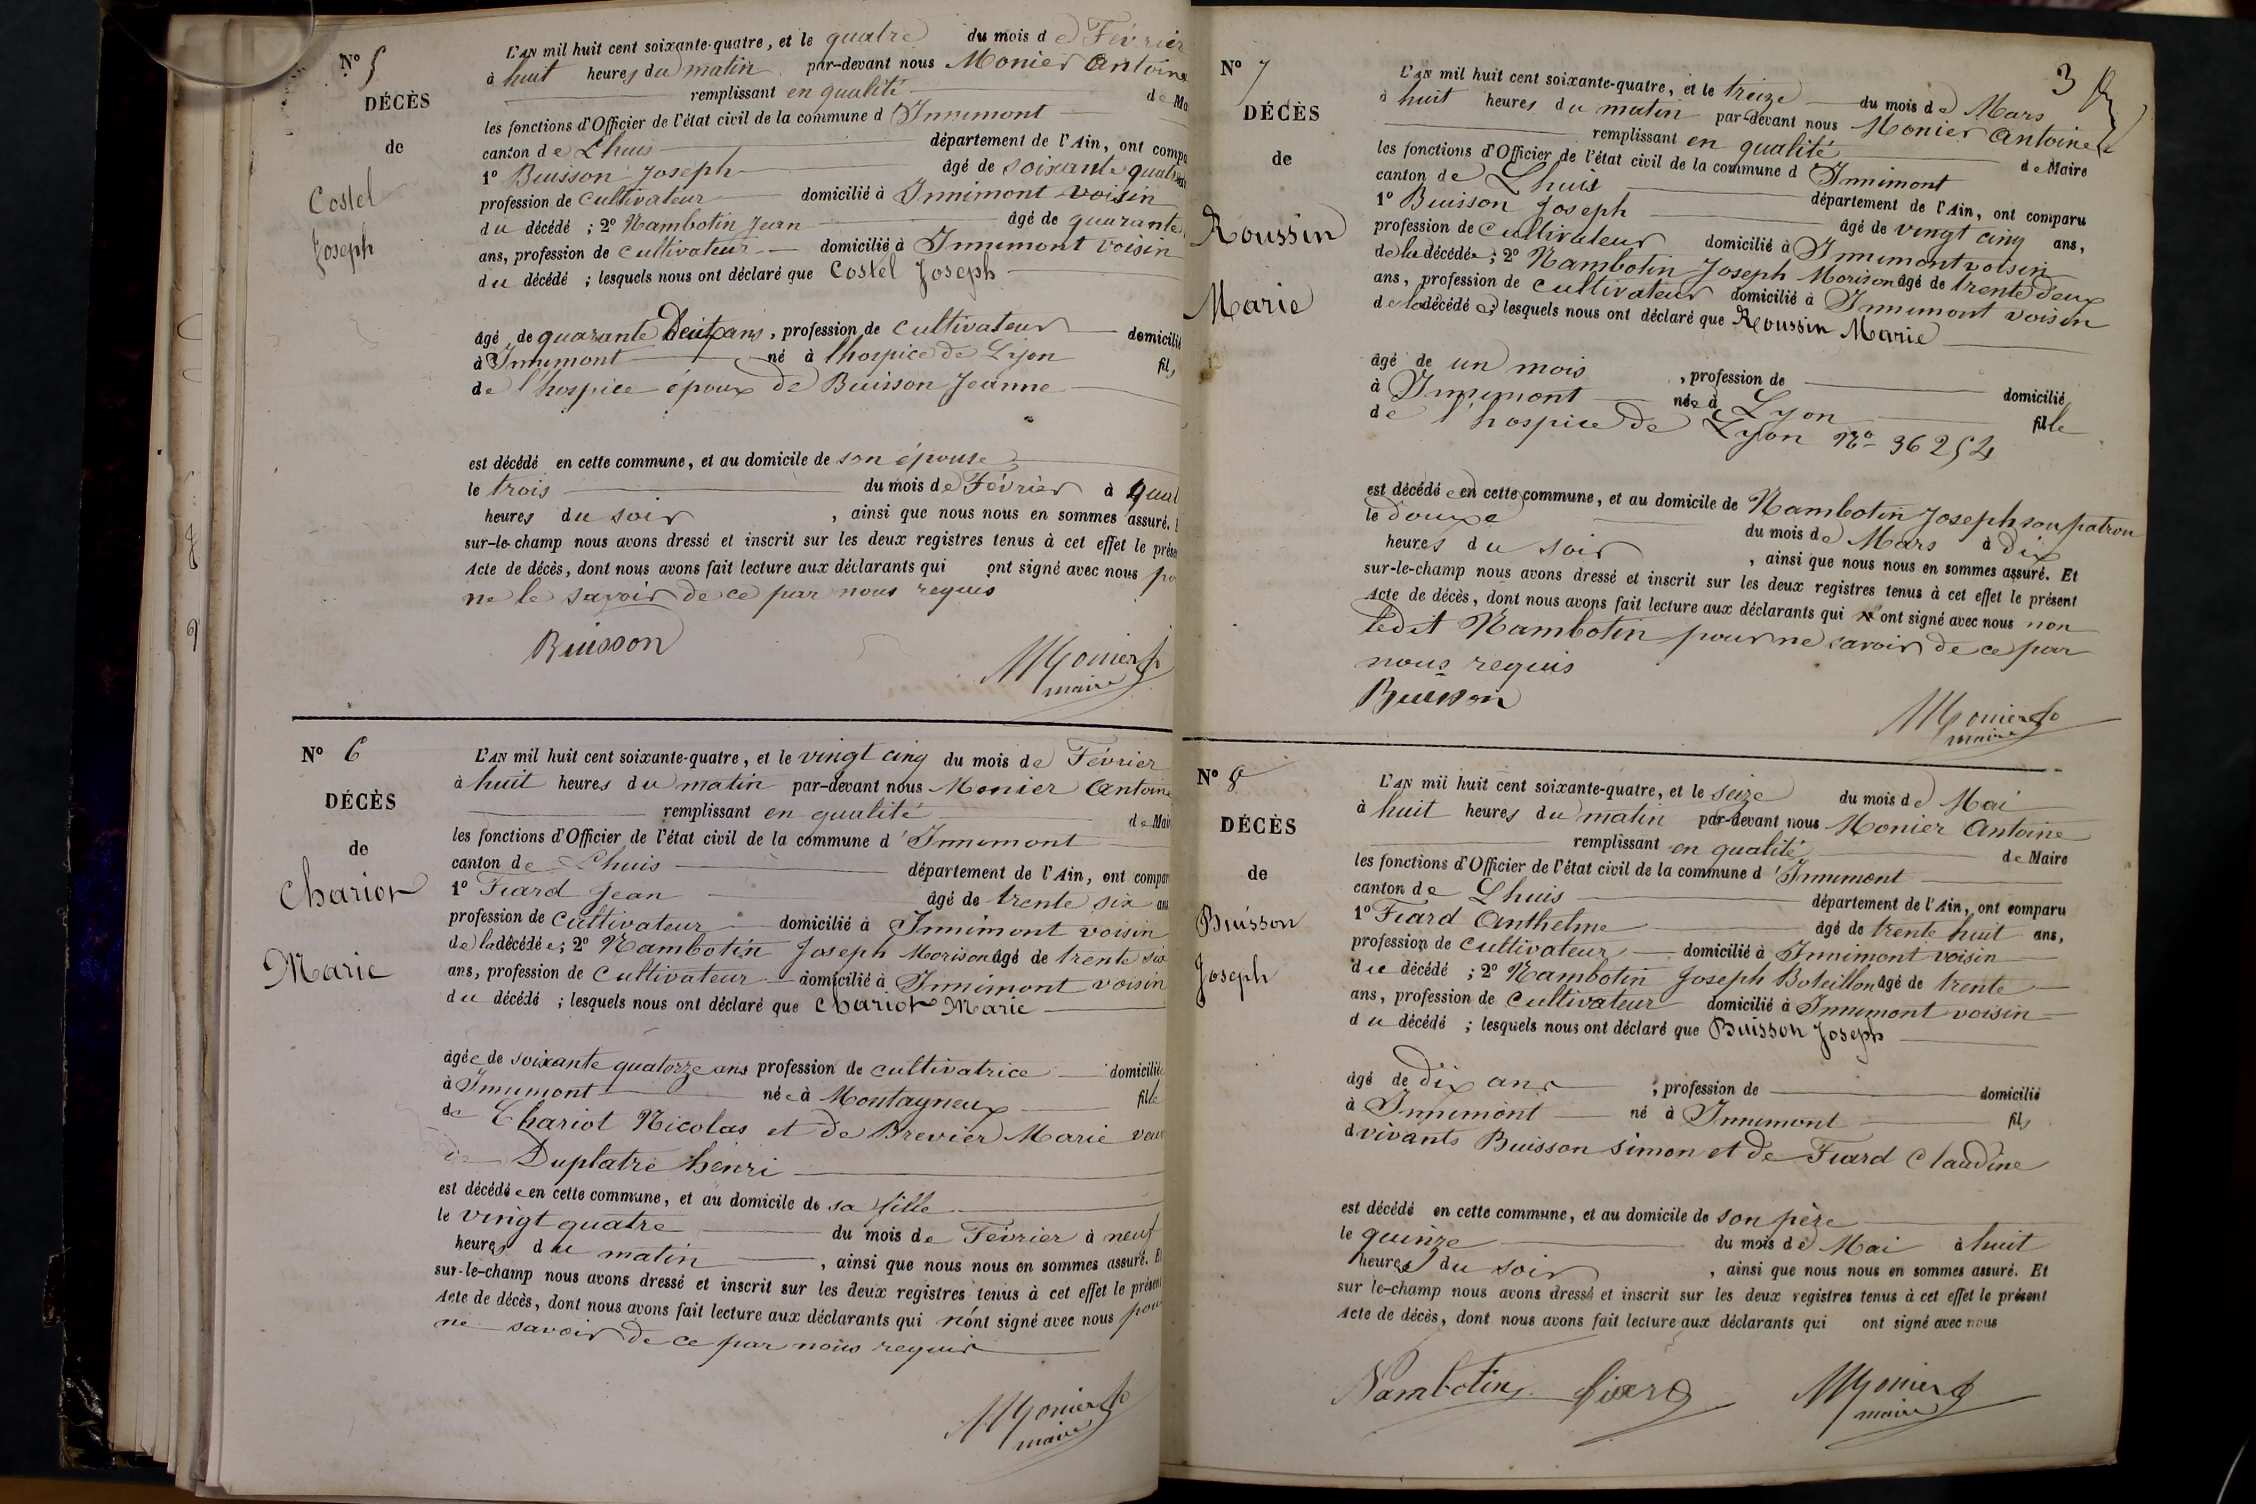 N° 5
DÉCÈS
de
Costel
Joseph
L'AN mil huit cent soixante-quatre, et le quatre du mois de Février
à huit heures du matin par-devant nous Monier Antoine
remplissant en qualité de Ma
les fonctions d'Officier de l'état civil de la commune d'Innimont
canton de Lhuis département de l'Ain, ont compa
1° Buisson Joseph âgé de soixante quatre
profession de cultivateur domicilié à Innimont voisin
du décédé ; 2° Nambotin Jean âgé de quarante
ans, profession de cultivateur domicilié à Innimont voisin
du décédé ; lesquels nous ont déclaré que Costel Joseph
âgé de quarante huit ans, profession de cultivateur domicilié
à Innimont né à l'hospice de Lyon fils
de l'hospice époux de Buisson Jeanne
est décédé en cette commune, et au domicile de son épouse
le trois du mois de Février à quat
heures du soir, ainsi que nous nous en sommes assuré.
sur-le-champ nous avons dressé et inscrit sur les deux registres tenus à cet effet le prése
Acte de décès, dont nous avons fait lecture aux déclarants qui ont signé avec nous po
ne le savoir de ce par nous requis
Buisson
Monier
maire
N° 6
DÉCÈS
de
Chariot
Marie
L'AN mil huit cent soixante-quatre, et le vingt cinq du mois de Février
à huit heures du matin par-devant nous Monier Antoine
remplissant en qualité de Mai
les fonctions d'Officier de l'état civil de la commune d'Innimont
canton de Lhuis département de l'Ain, ont compar
1° Fiard Jean âgé de trente six ans
profession de cultivateur domicilié à Innimont voisin
de la décédée ; 2° Nambotin Joseph Morison âgé de trente six
ans, profession de cultivateur domicilié à Innimont voisin
du décédé ; lesquels nous ont déclaré que Chariot Marie
âgée de soixante quatorze ans profession de cultivatrice domicilié
à Innimont née à Montagneux fille
de Chariot Nicolas et de Brevier Marie veuv
de Duplatre henri
est décédée en cette commune, et au domicile de sa fille
le vingt quatre du mois de Février à neuf
heures du matin, ainsi que nous nous en sommes assuré. Et
sur-le-champ nous avons dressé et inscrit sur les deux registres tenus à cet effet le présent
Acte de décès, dont nous avons fait lecture aux déclarants qui n'ont signé avec nous pour
ne savoir de ce par nous requis
Monier
maire
3
N° 7
DÉCÈS
de
Roussin
Marie
L'AN mil huit cent soixante-quatre, et le treize du mois de Mars
à huit heures du matin par-devant nous Monier Antoine
remplissant en qualité de Maire
les fonctions d'Officier de l'état civil de la commune d Innimont
canton de Lhuis département de l'Ain, ont comparu
1° Buisson Joseph âgé de vingt cinq ans,
profession de cultivateur domicilié à Innimont voisin
de la décédée ; 2° Nambotin Joseph Morison âgé de trente deux
ans, profession de cultivateur domicilié à Innimont voisin
de la décédée ; lesquels nous ont déclaré que Roussin Marie
âgé de un mois, profession de domicilié
à Innimont née à Lyon fille
de l'hospice de Lyon N° 36254
est décédée en cette commune, et au domicile de Nambotin Joseph son patron
le douze du mois de Mars à dix
heures du soir, ainsi que nous nous en sommes assuré. Et
sur-le-champ nous avons dressé et inscrit sur les deux registres tenus à cet effet le présent
Acte de décès, dont nous avons fait lecture aux déclarants qui ont signé avec nous non
ledit Nambotin pour ne savoir de ce par
nous requis
Buisson
Monier
maire
N° 8
DÉCÈS
de
Buisson
Joseph
L'AN mil huit cent soixante-quatre, et le seize du mois de Mai
à huit heures du matin par-devant nous Monier Antoine
remplissant en qualité de Maire
les fonctions d'Officier de l'état civil de la commune d'Innimont
canton de Lhuis département de l'Ain, ont comparu
1° Fiard Anthelme âgé de trente huit ans,
profession de cultivateur domicilié à Innimont voisin
du décédé ; 2° Nambotin Joseph Boteillon âgé de trente
ans, profession de cultivateur domicilié à Innimont voisin
du décédé ; lesquels nous ont déclaré que Buisson Joseph
âgé de dix ans, profession de domicilié
à Innimont né à Innimont fils
d vivants Buisson Simon et de Fiard Claudine
est décédé en cette commune, et au domicile de son père
le quinze du mois de Mai à huit
heures du soir, ainsi que nous nous en sommes assuré. Et
sur le-champ nous avons dressé et inscrit sur les deux registres tenus à cet effet le présent
Acte de décès, dont nous avons fait lecture aux déclarants qui ont signé avec nous
Nambotin fiard Monier
maire